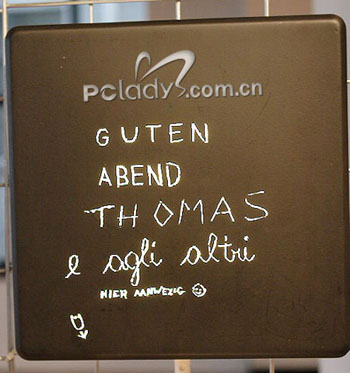 PClady.com.cn
GUTEN
ABEND
THOMAS
e agli altri
HIER AANWEZIG